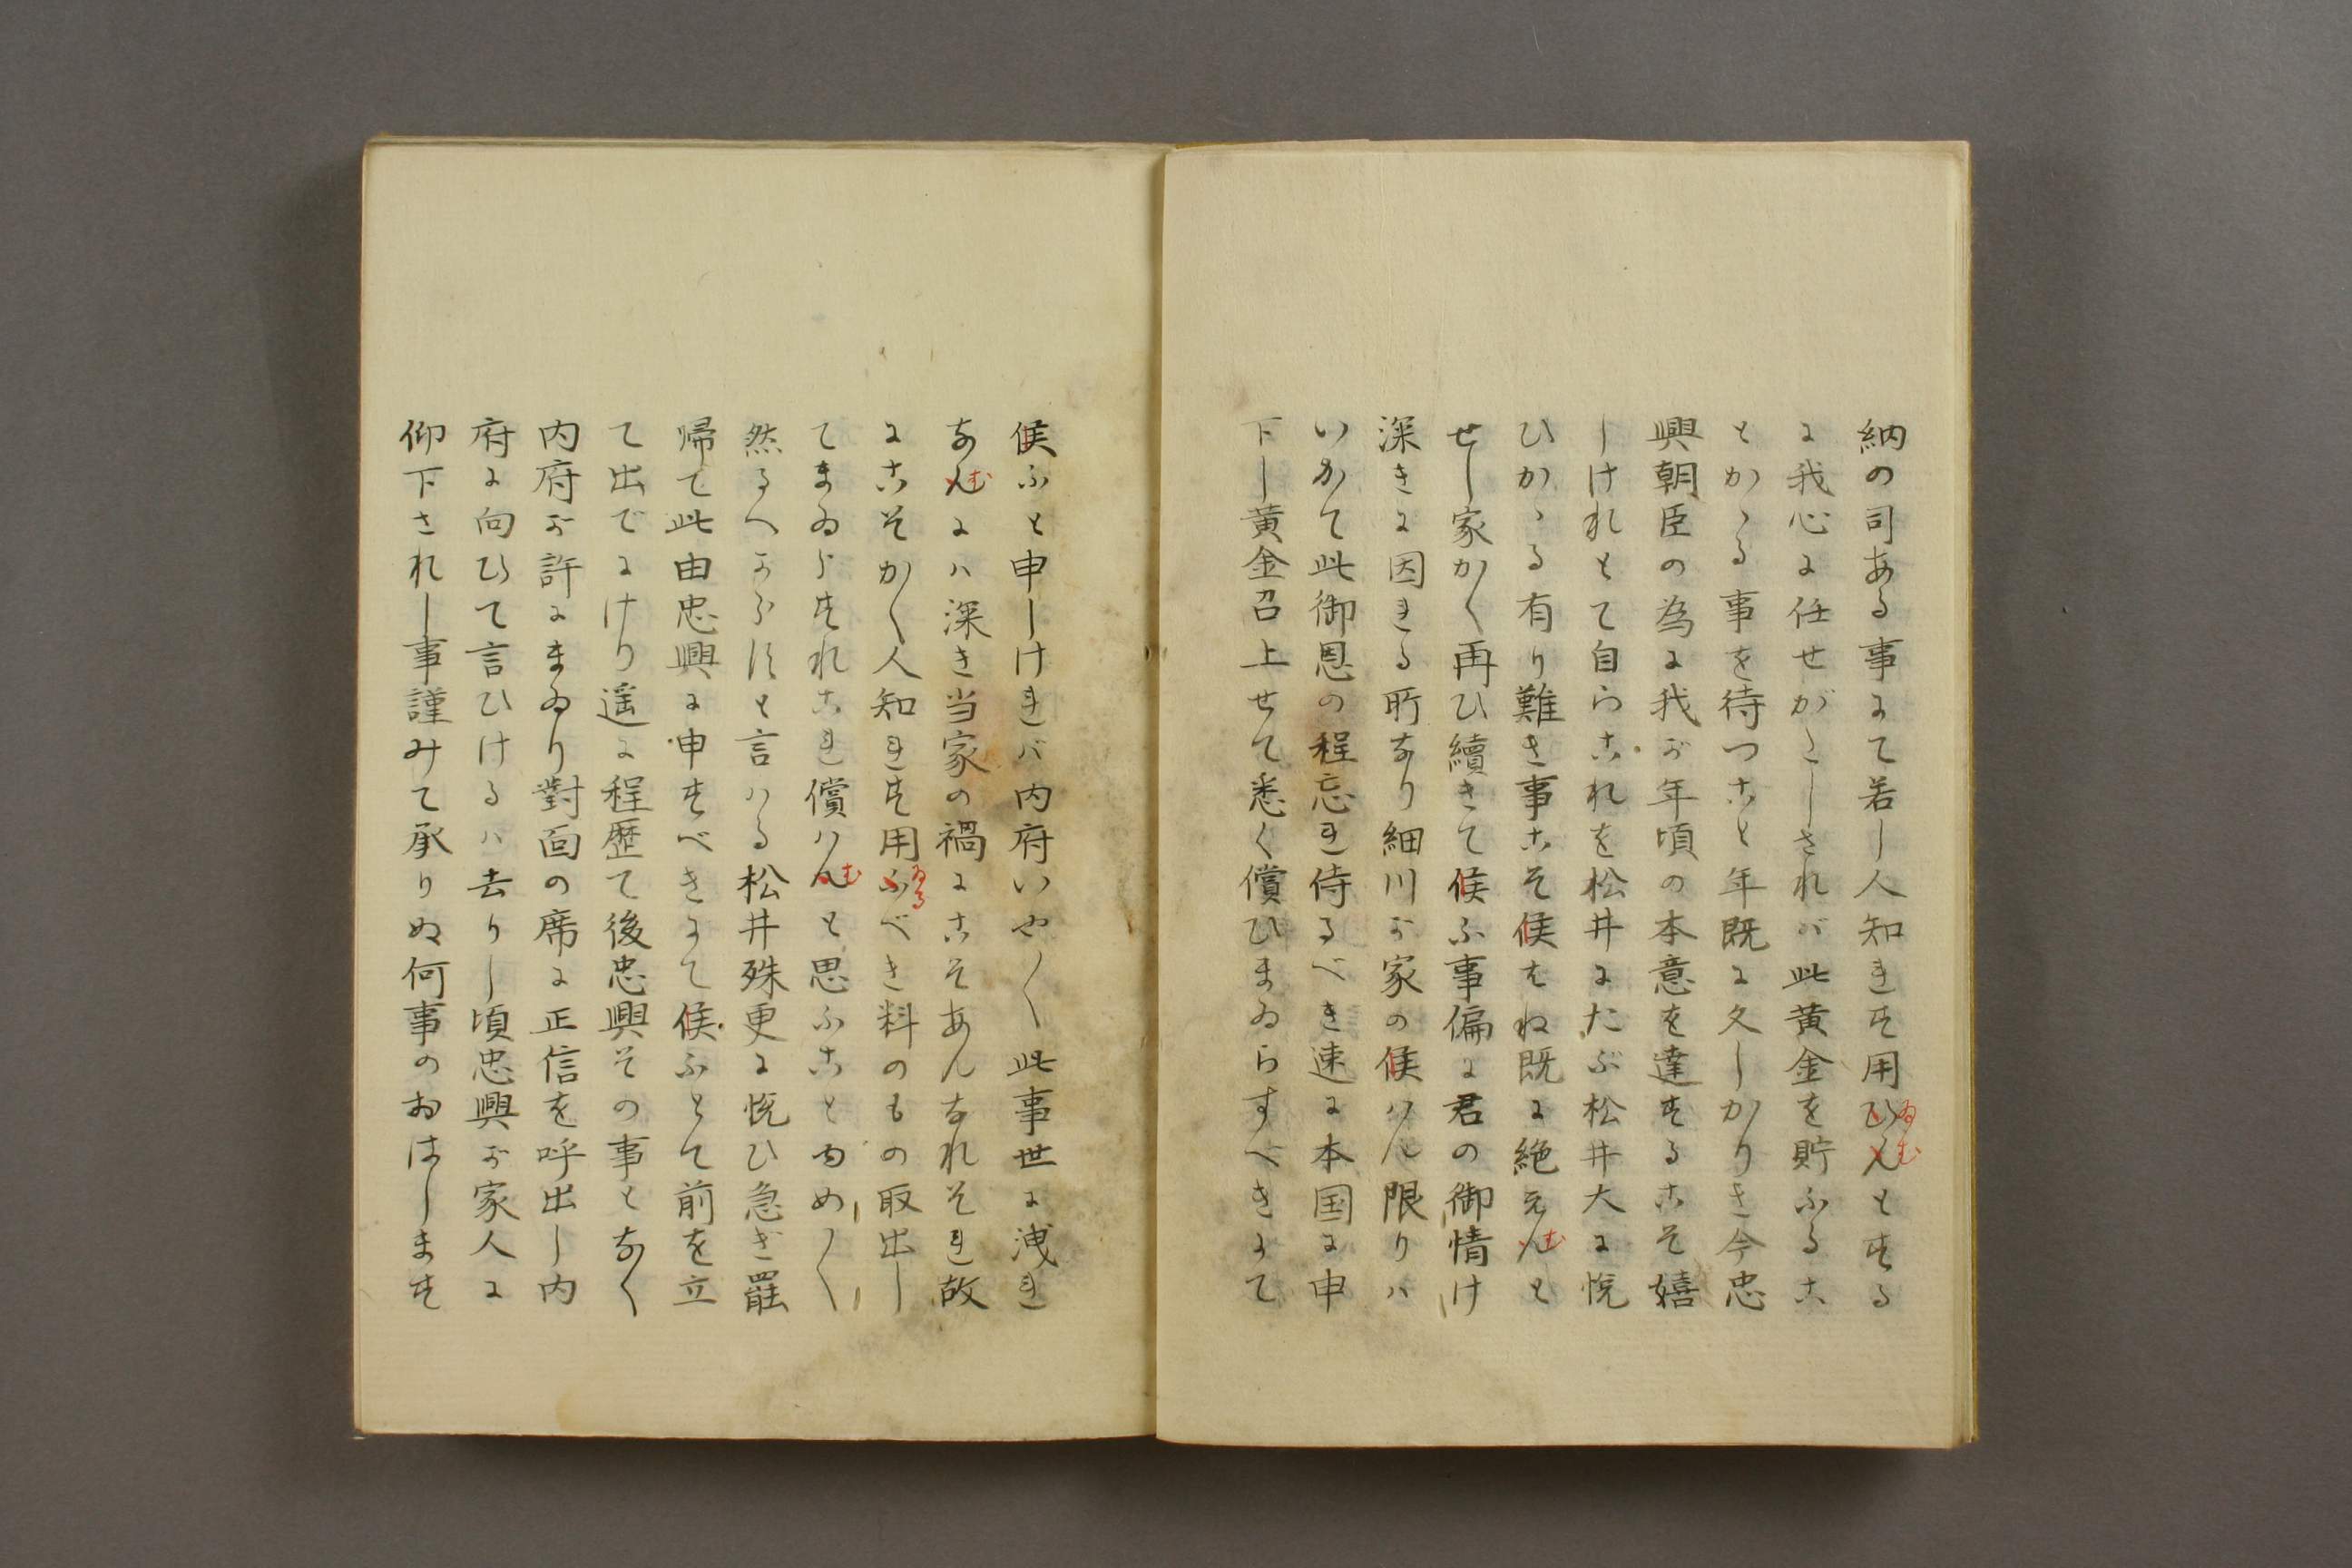 納の司ある事にて若し人知れず用ひんとする
に我心に任せがたしされバ此黄金を貯ふるこ
とかゝる事を待つこと年既に久しかりき今忠
興朝臣の為に我が年頃の本意を達するこそ嬉
しけれとて自らこれを松井にたぶ松井大に悦
ひかゝる有り難き事こそ候はね既に絶えんと
せし家かく再ひ續きて候ふ事偏に君の御情け
深きに因れる所なり細川が家の候ハん限りハ
いかて此御恩の程忘れ侍るべき速に本国に申
下し黄金召上せて悉く償ひまゐらすべきにて
候ふと申しけれバ内府いや〳〵此事世に洩れ
なんにハ深き当家の禍にこそあんなれそれ故
にこそかく人知れず用ふべき料のもの取出し
てまゐらすれこれ償ハんと思ふことゆめ〳〵
然るへからずと言ハる松井殊更に悦ひ急ぎ罷
帰て此由忠興に申すべきにて候ふとて前を立
て出でにけり遥に程歴て後忠興その事となく
内府が許にまゐり對面の席に正信を呼出し内
府に向ひて言ひけるハ去りし頃忠興が家人に
仰下されし事謹みて承りぬ何事のおはします